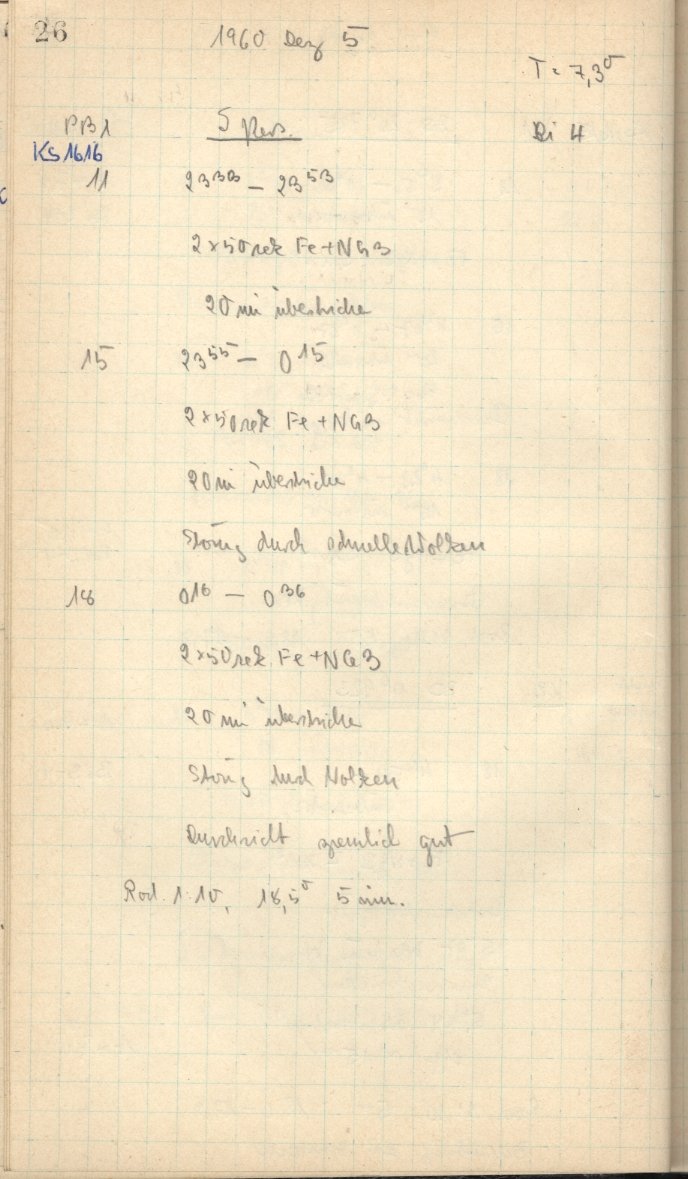 26 1960 Dez 5
T = 7,3°
PB1 5 Pers. Ri 4
KS1616
11 23 33 – 23 53
2 × 50 sek Fe + NG3
20 mi überstriche
15 23 55 – 0 15
2 × 50 sek Fe + NG3
20 mi überstriche
Störug durch schnelle Wolken
18 0 16 – 0 36
2 × 50 sek Fe + NG3
20 mi überstriche
Störug durch Wolken
Durchsicht ziemlich gut
Rod. 1:10, 18,5° 5 min.